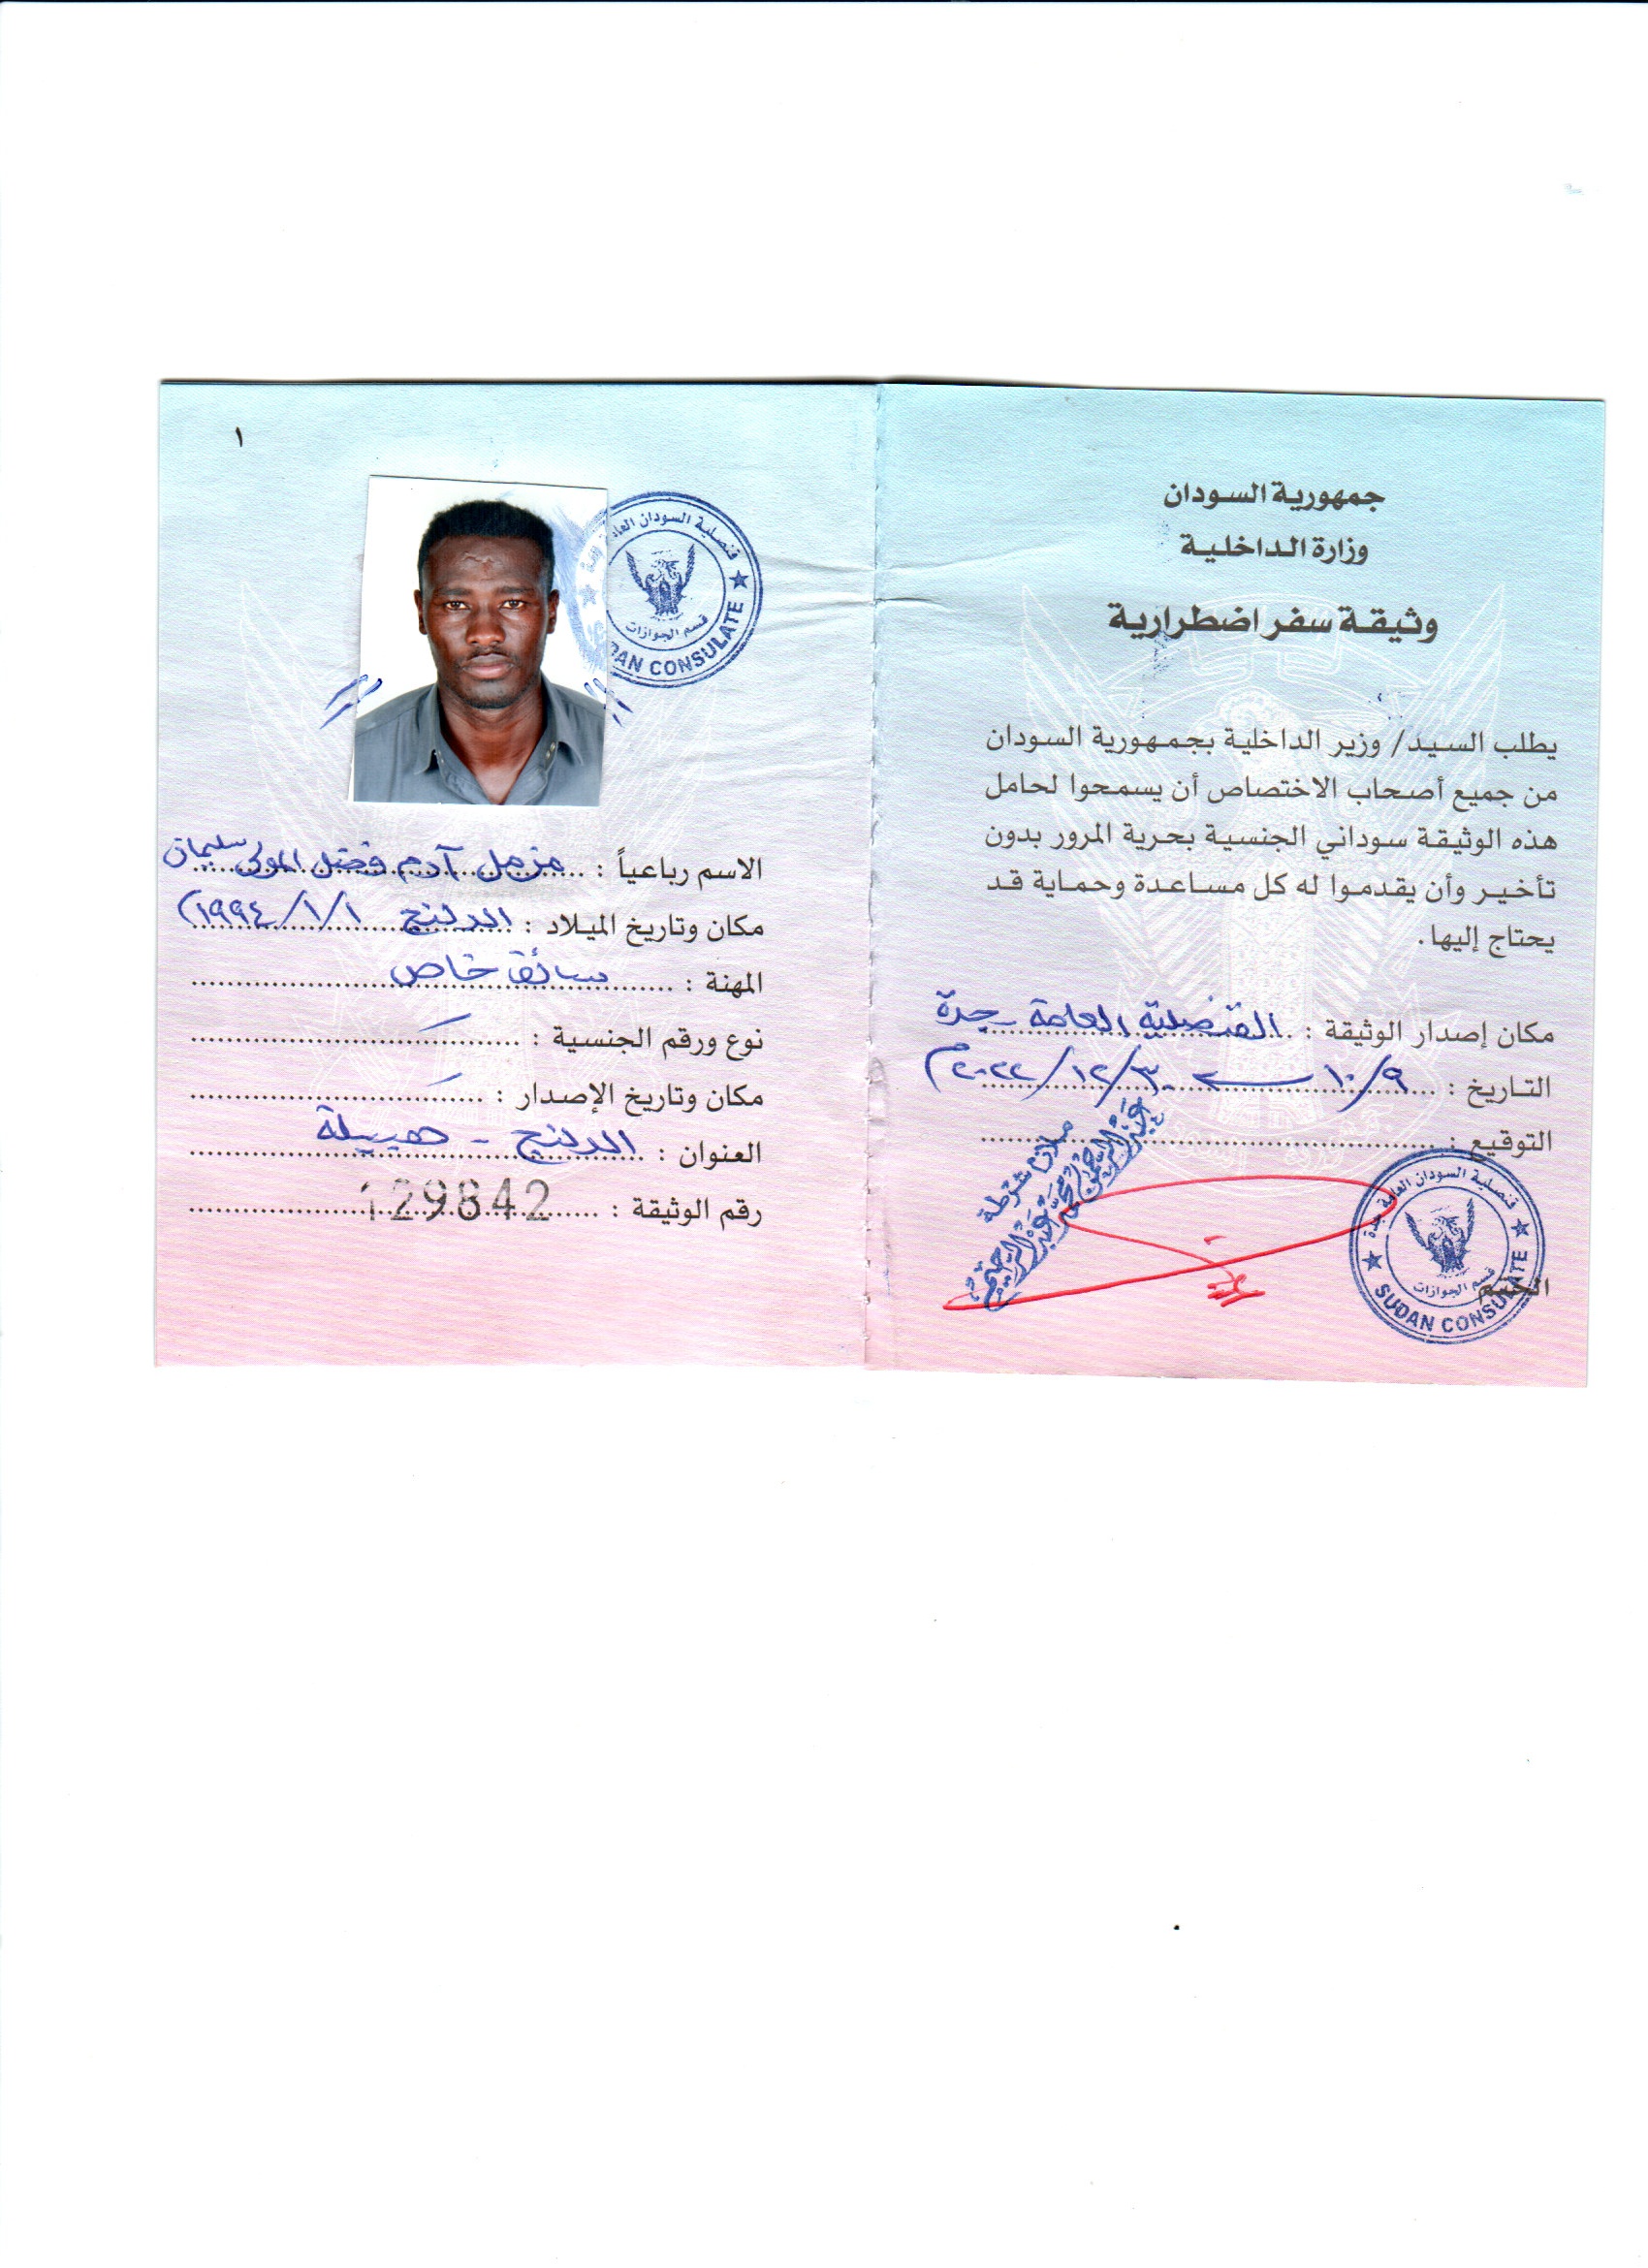 جمهورية السودان
وزارة الداخلية
وثيقة سفر اضطرارية
يطلب السيد/ وزير الداخلية بجمهورية السودان
من جميع أصحاب الاختصاص أن يسمحوا لحامل
هذه الوثيقة سوداني الجنسية بحرية المرور بدون
تأخير وأن يقدموا له كل مساعدة وحماية قد
يحتاج إليها.
مكان إصدار الوثيقة : القنصلية العامة - جدة
التاريخ : ١٠/٩ ــ ٢٠٢٢/١٢/٣٠م
التوقيع :
ملازم شرطة
قنصلية السودان العامة جدة
قسم الجوازات
SUDAN CONSULATE
الختم
١
قنصلية السودان العامة
قسم الجوازات
SUDAN CONSULATE
الاسم رباعياً : مزمل آدم فضل المولى سليمان
مكان وتاريخ الميلاد : الدلنج ١٩٩٤/١/١
المهنة : سائق خاص
نوع ورقم الجنسية :
مكان وتاريخ الإصدار :
العنوان : الدلنج - هبيلة
رقم الوثيقة : 129842